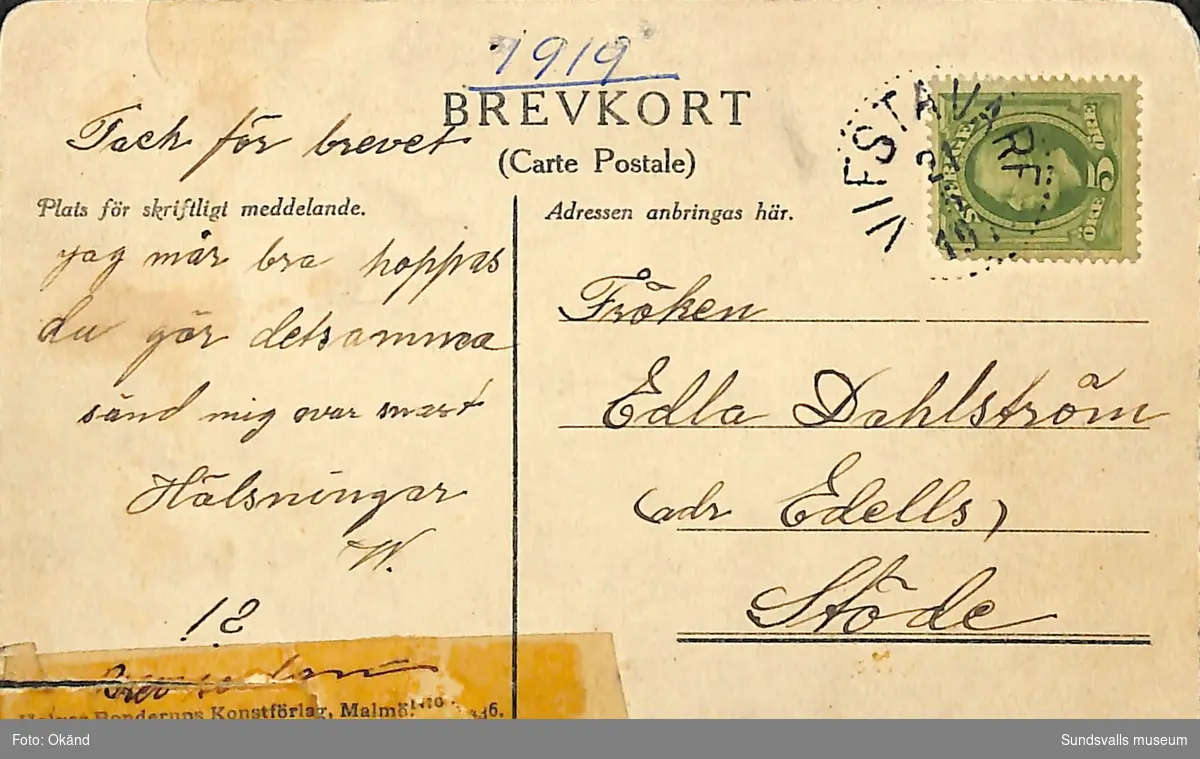 1919
BREVKORT
(Carte Postale)
Tack för brevet
Plats för skriftligt meddelande.
jag mår bra hoppas
du gör detsamma
sänd mig svar snart
Hälsningar
W.
12
Ronderups Konstförlag, Malmö.
Adressen anbringas här.
VIFSTAVARF
SVERIGE
ÖRE 5 ÖRE
Fröken
Edla Dahlström
(adr Edells)
Stöde
Foto: Okänd
Sundsvalls museum